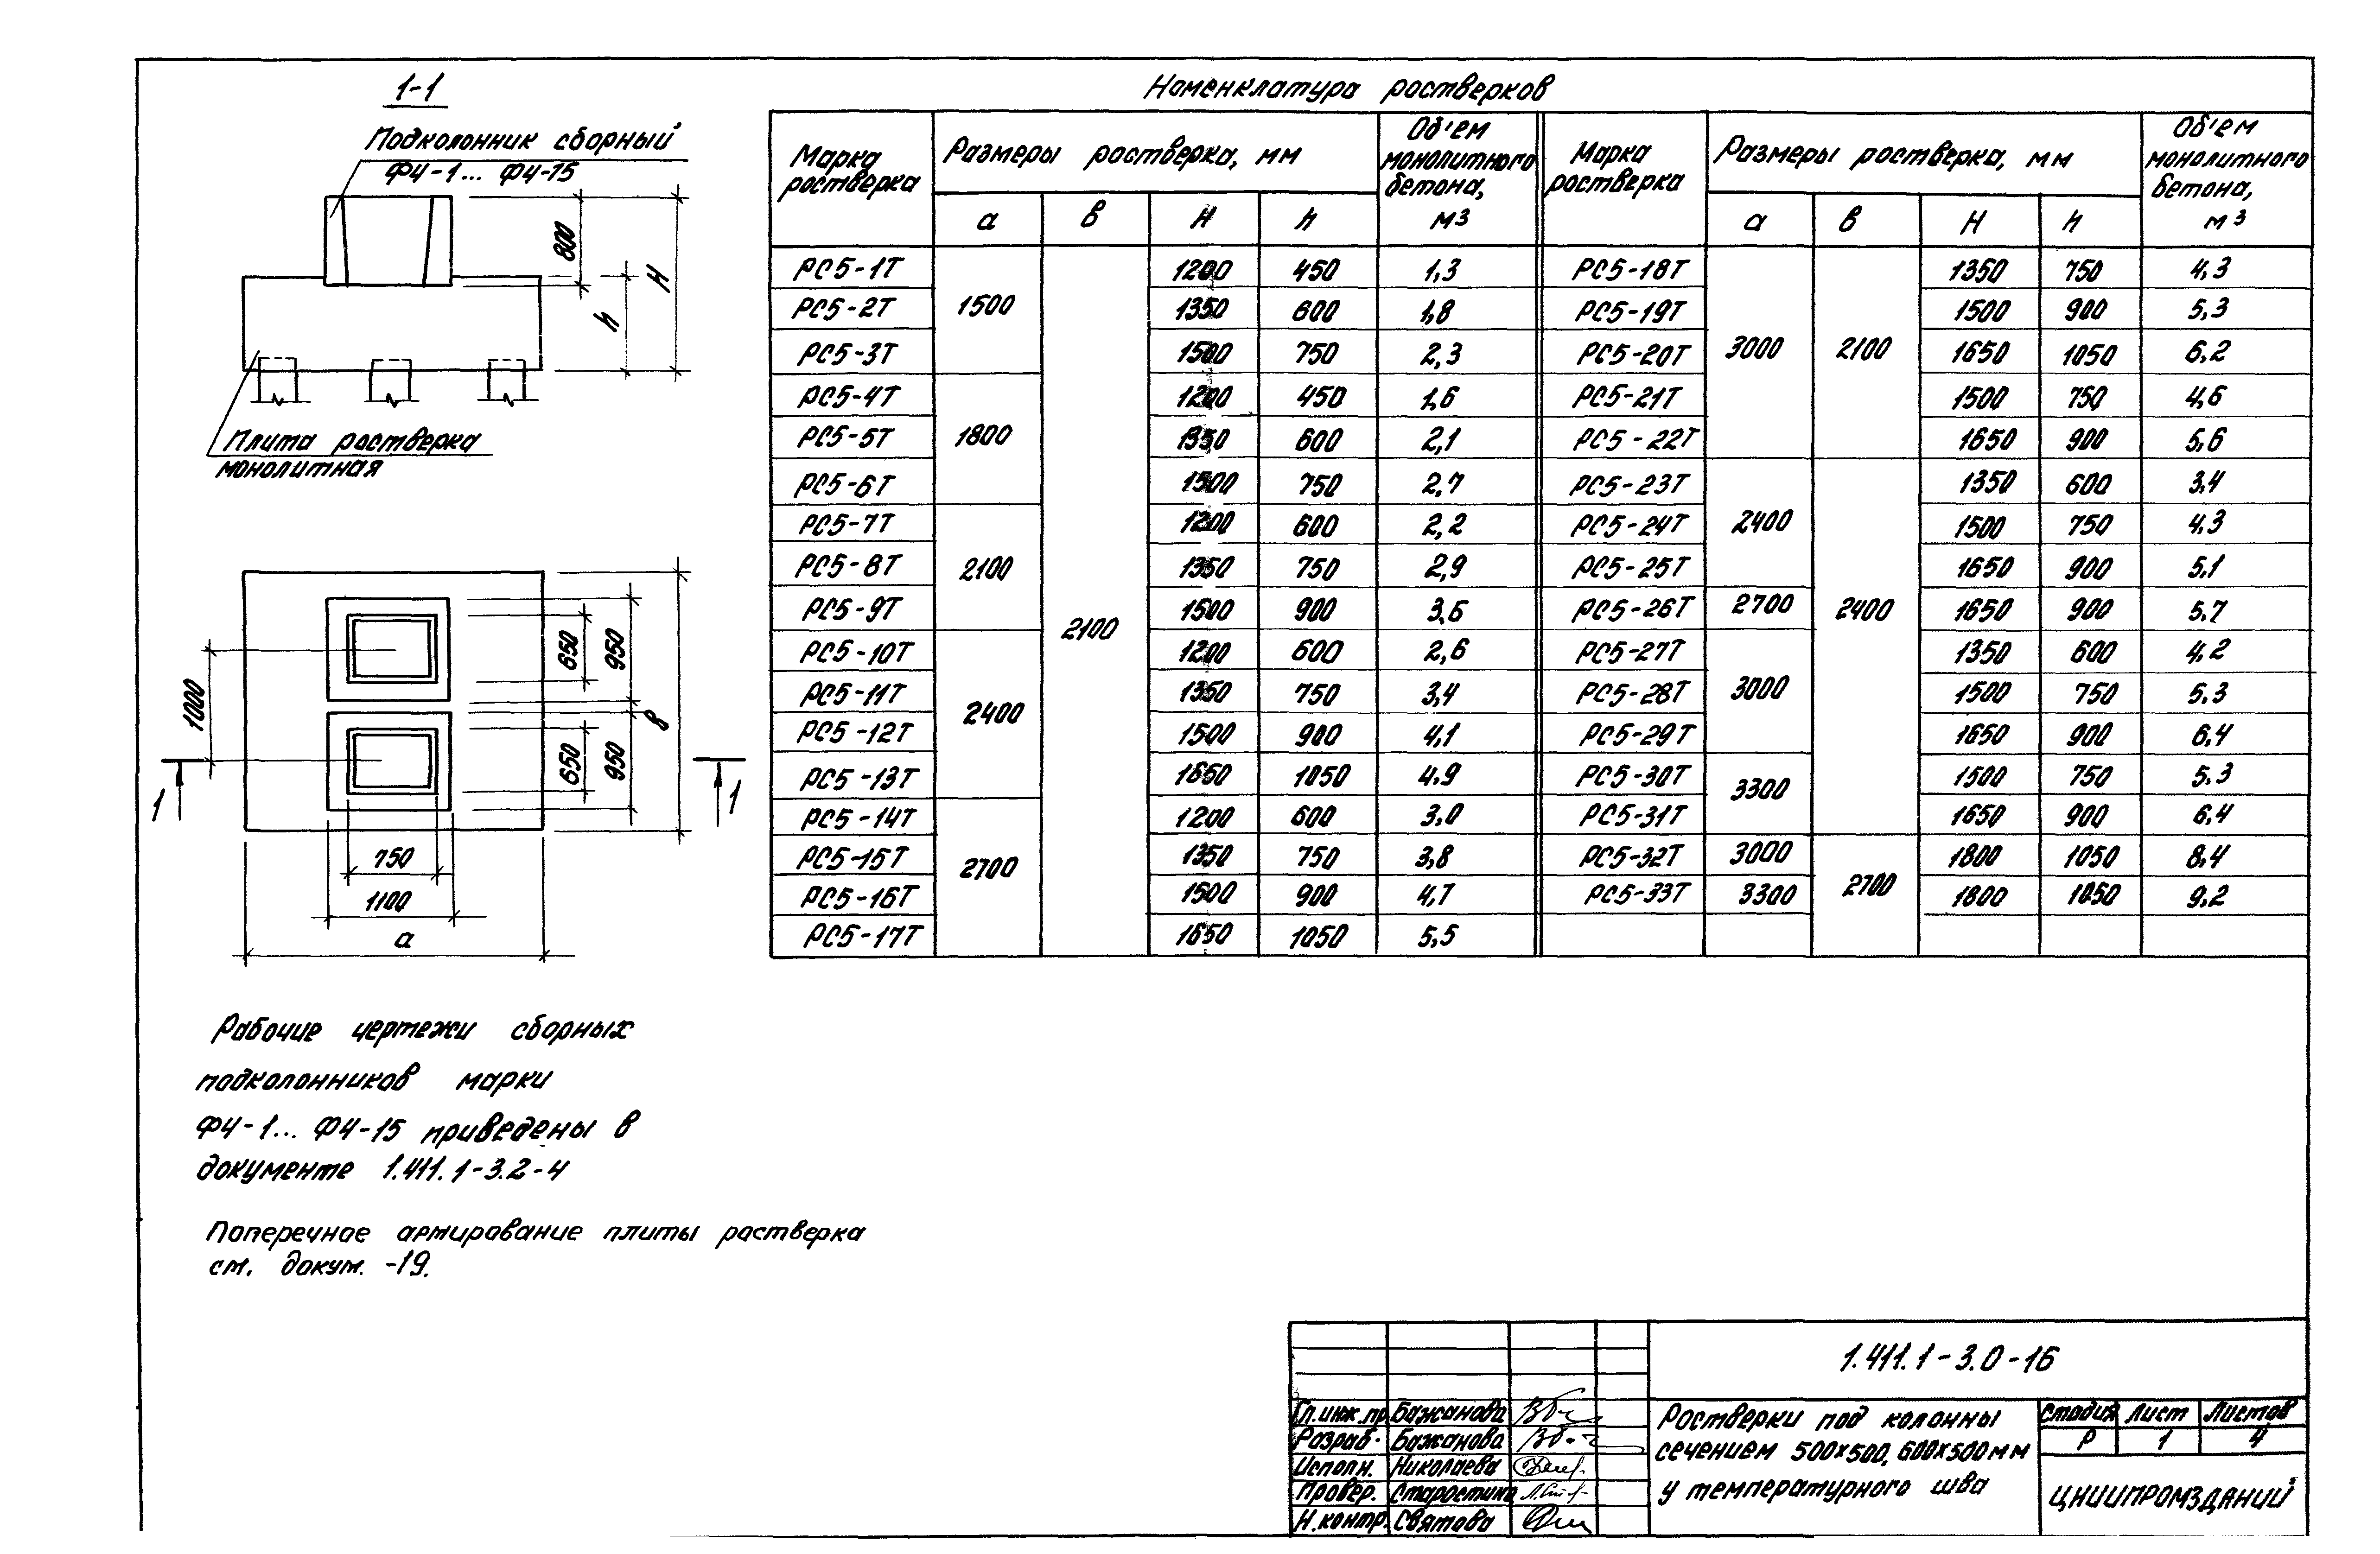 1-1
Подколонник сборный
Ф4-1... Ф4-15
800
h
H
Плита ростверка
монолитная
1000
650
950
650
950
в
1
1
750
1100
а
Рабочие чертежи сборных
подколонников марки
Ф4-1... Ф4-15 приведены в
документе 1.411.1-3.2-4
Поперечное армирование плиты ростверка
см. докум. -19.
Номенклатура ростверков
Марка ростверка | Размеры ростверка, мм | Об'ем монолитного бетона, м3 | Марка ростверка | Размеры ростверка, мм | Об'ем монолитного бетона, м3
а в H h а в H h
РС5-1Т 1500 2100 1200 450 1,3 РС5-18Т 3000 2100 1350 750 4,3
РС5-2Т 1350 600 1,8 РС5-19Т 1500 900 5,3
РС5-3Т 1500 750 2,3 РС5-20Т 1650 1050 6,2
РС5-4Т 1800 1200 450 1,6 РС5-21Т 1500 750 4,6
РС5-5Т 1350 600 2,1 РС5-22Т 1650 900 5,6
РС5-6Т 1500 750 2,7 РС5-23Т 2400 2400 1350 600 3,4
РС5-7Т 2100 1200 600 2,2 РС5-24Т 1500 750 4,3
РС5-8Т 1350 750 2,9 РС5-25Т 1650 900 5,1
РС5-9Т 1500 900 3,6 РС5-26Т 2700 1650 900 5,7
РС5-10Т 2400 1200 600 2,6 РС5-27Т 3000 1350 600 4,2
РС5-11Т 1350 750 3,4 РС5-28Т 1500 750 5,3
РС5-12Т 1500 900 4,1 РС5-29Т 1650 900 6,4
РС5-13Т 1650 1050 4,9 РС5-30Т 3300 1500 750 5,3
РС5-14Т 2700 1200 600 3,0 РС5-31Т 1650 900 6,4
РС5-15Т 1350 750 3,8 РС5-32Т 3000 2700 1800 1050 8,4
РС5-16Т 1500 900 4,7 РС5-33Т 3300 1800 1050 9,2
РС5-17Т 1650 1050 5,5
1.411.1-3.0-16
Гл.инж.пр. Бажанова
Разраб. Бажанова
Исполн. Николаева
Провер. Старостина
Н.контр. Святова
Ростверки под колонны
сечением 500х500, 600х500 мм
у температурного шва
Стадия Лист Листов
Р 1 4
ЦНИИПРОМЗДАНИЙ